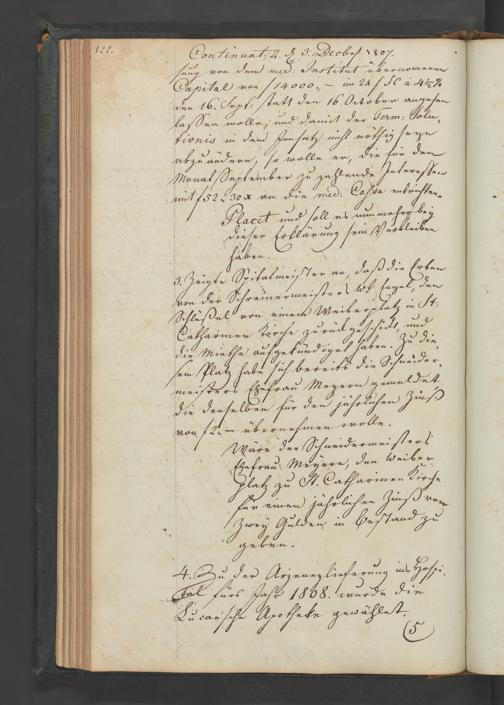 122.
Continuat: 2. d. 3. Decbr 1807.
sung von dem med. Institut übernommenen
Capital von f 14000,- im 24 f Fß à 4½ %
den 16. Sept: statt den 16 October angehen
lassen wolle, und damit der Term: Solu-
tionis in dem Insatz nicht nöthig seye
abzuändern, so wolle er, die für den
Monat September zu zahlende Interessen
mit f 52. 30 x an die med: Cassa entrichten.
Placet und soll es nunmehro bey
dieser Erklärung sein Verbleiben
haben.
3. Zeigte Spitalmeister an, daß die Erben
von der Schreinermeisters Wb. Hagel, den
Schlüssel von einem Weiberplatz in St:
Catharinen Kirche zurückgeschickt, und
die Miethe aufgekündiget haben. Zu die-
sem Platz habe sich bereits die Schneider-
meisters Ehefrau Meyern gemeldet
die denselben für den jährlichen Zinß
von f 2.- übernehmen wolle.
Wäre der Schneidermeisters
Ehefrau Meyern, den Weiber
platz zu St. Catharinen Kirche
für einen jährlichen Zinß von
Zwey Gulden in Bestand zu
geben.
4. Zu der Arzeneylieferung ins Hospi-
tal fürs Jahr 1808. wurde die
Lucae'sche Apotheke gewählet.
(5